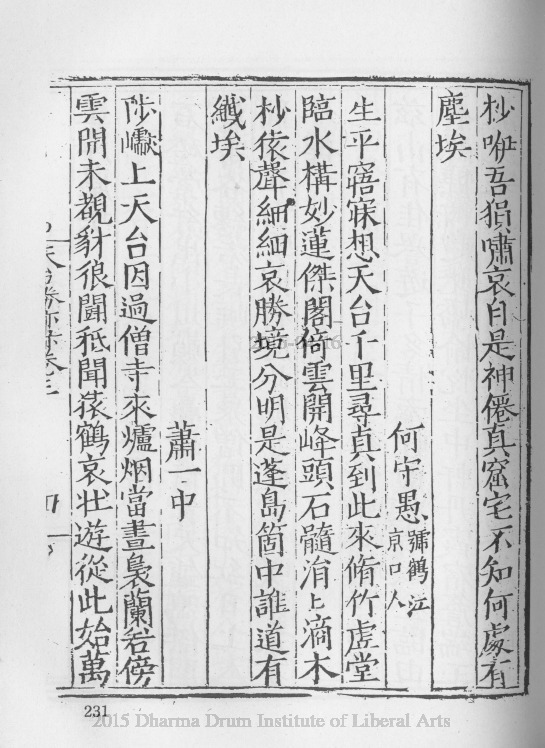 杪咿吾猿嘯哀自是神僊真窟宅不知何處有
塵埃
何守愚號鶴江京口人
生平寤寐想天台千里尋真到此來脩竹虛堂
臨水構妙蓮傑閣倚雲開峰頭石髓涓〻滴木
杪猿聲細細哀勝境分明是蓬島箇中誰道有
纎埃
蕭一中
陟巘上天台因過僧寺來爐烟當晝裊蘭若傍
雲開未覩豺狼鬪秪聞猿鶴哀壯遊從此始萬
231
2015 Dharma Drum Institute of Liberal Arts